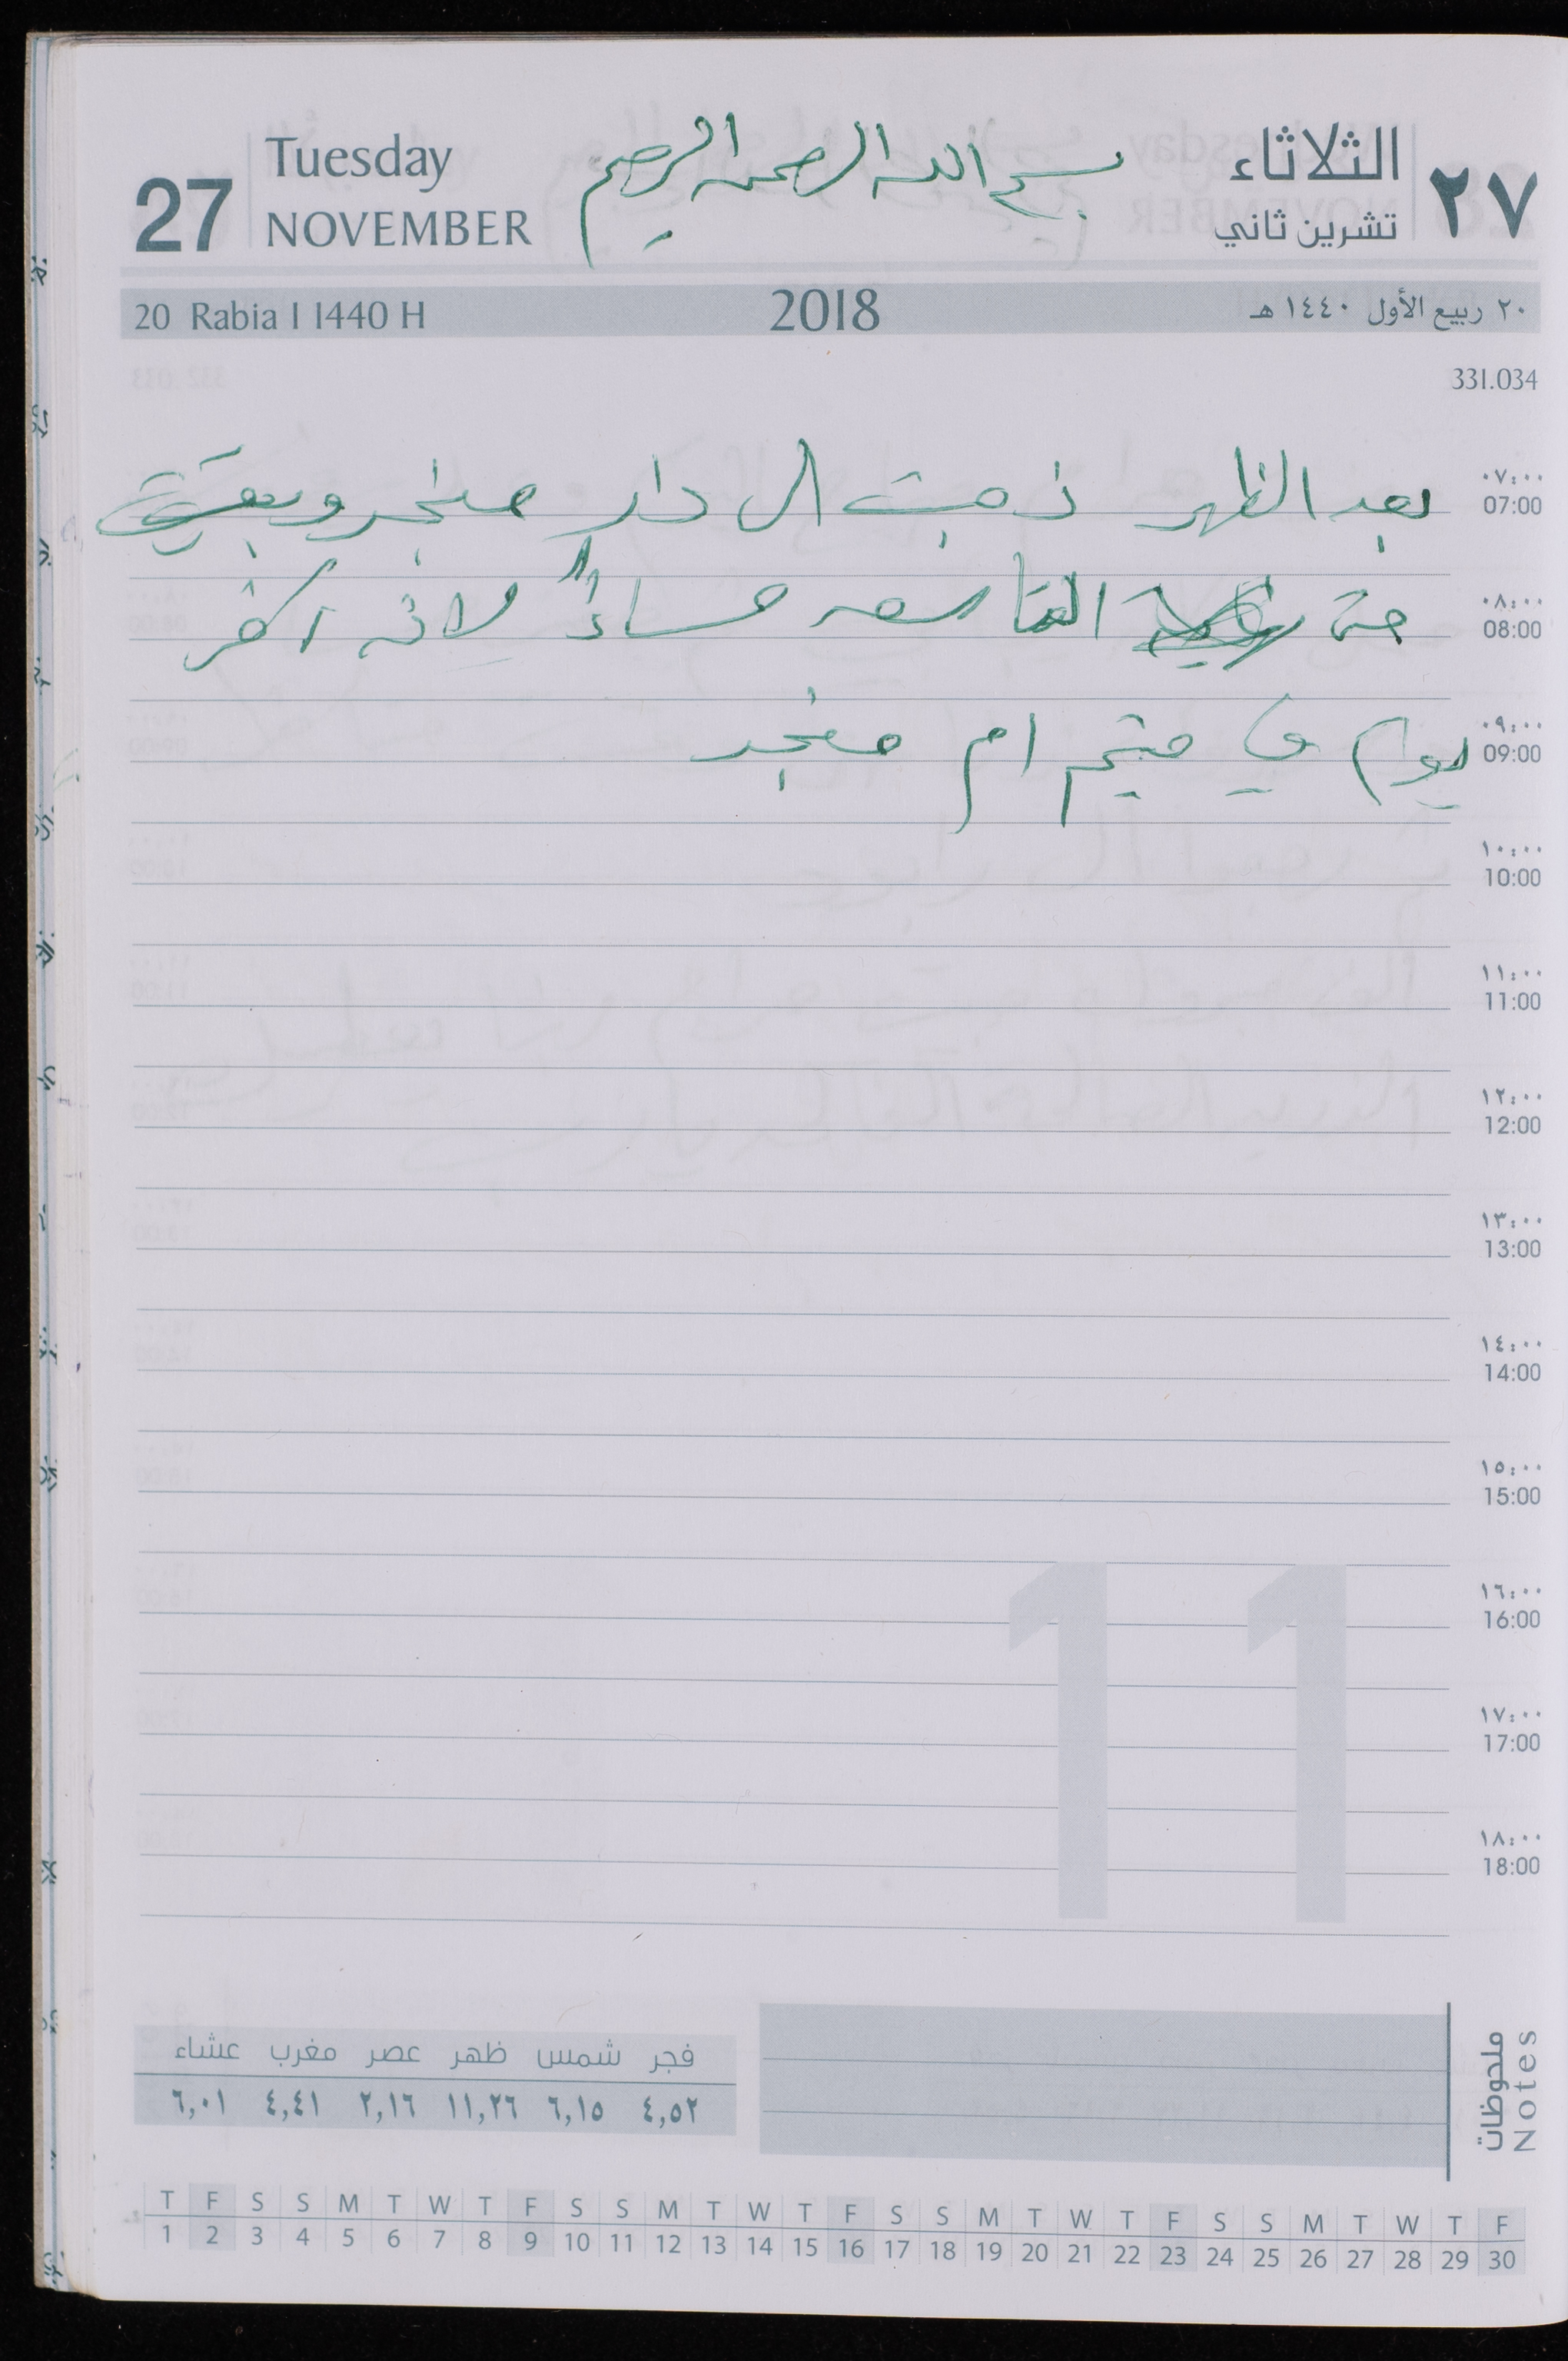 27 Tuesday NOVEMBER
بسم الله الرحمن الرحيم
الثلاثاء ٢٧
تشرين ثاني
20 Rabia I 1440 H 2018 ٢٠ ربيع الأول ١٤٤٠ هـ
331.034
بعد الظهر ذهبت الى دار منجد وبقيت
حتى التاسعه مساءً لانه اخر
يوم في ام منجد
٠٧:٠٠
07:00
٠٨:٠٠
08:00
٠٩:٠٠
09:00
١٠:٠٠
10:00
١١:٠٠
11:00
١٢:٠٠
12:00
١٣:٠٠
13:00
١٤:٠٠
14:00
١٥:٠٠
15:00
١٦:٠٠
16:00
١٧:٠٠
17:00
١٨:٠٠
18:00
11
فجر شمس ظهر عصر مغرب عشاء
٤,٥٢ ٦,١٥ ١١,٢٦ ٢,١٦ ٤,٤١ ٦,٠١
ملحوظات
Notes
T F S S M T W T F S S M T W T F S S M T W T F S S M T W T F
1 2 3 4 5 6 7 8 9 10 11 12 13 14 15 16 17 18 19 20 21 22 23 24 25 26 27 28 29 30